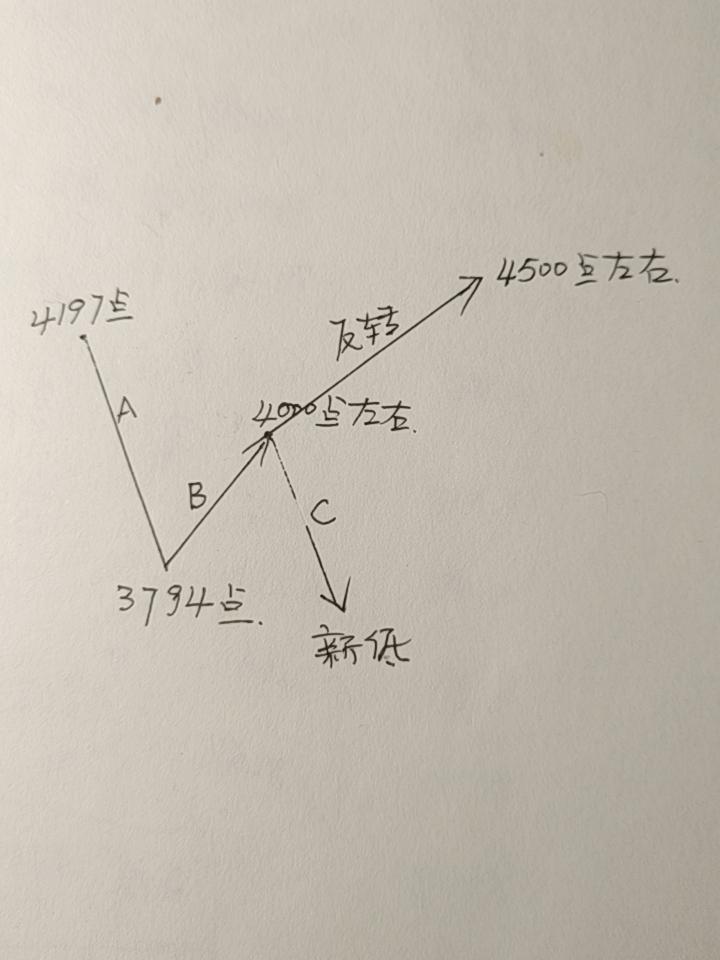 4500点左右.
4197点
反转
A
4000点左右.
B
C
3794点.
新低